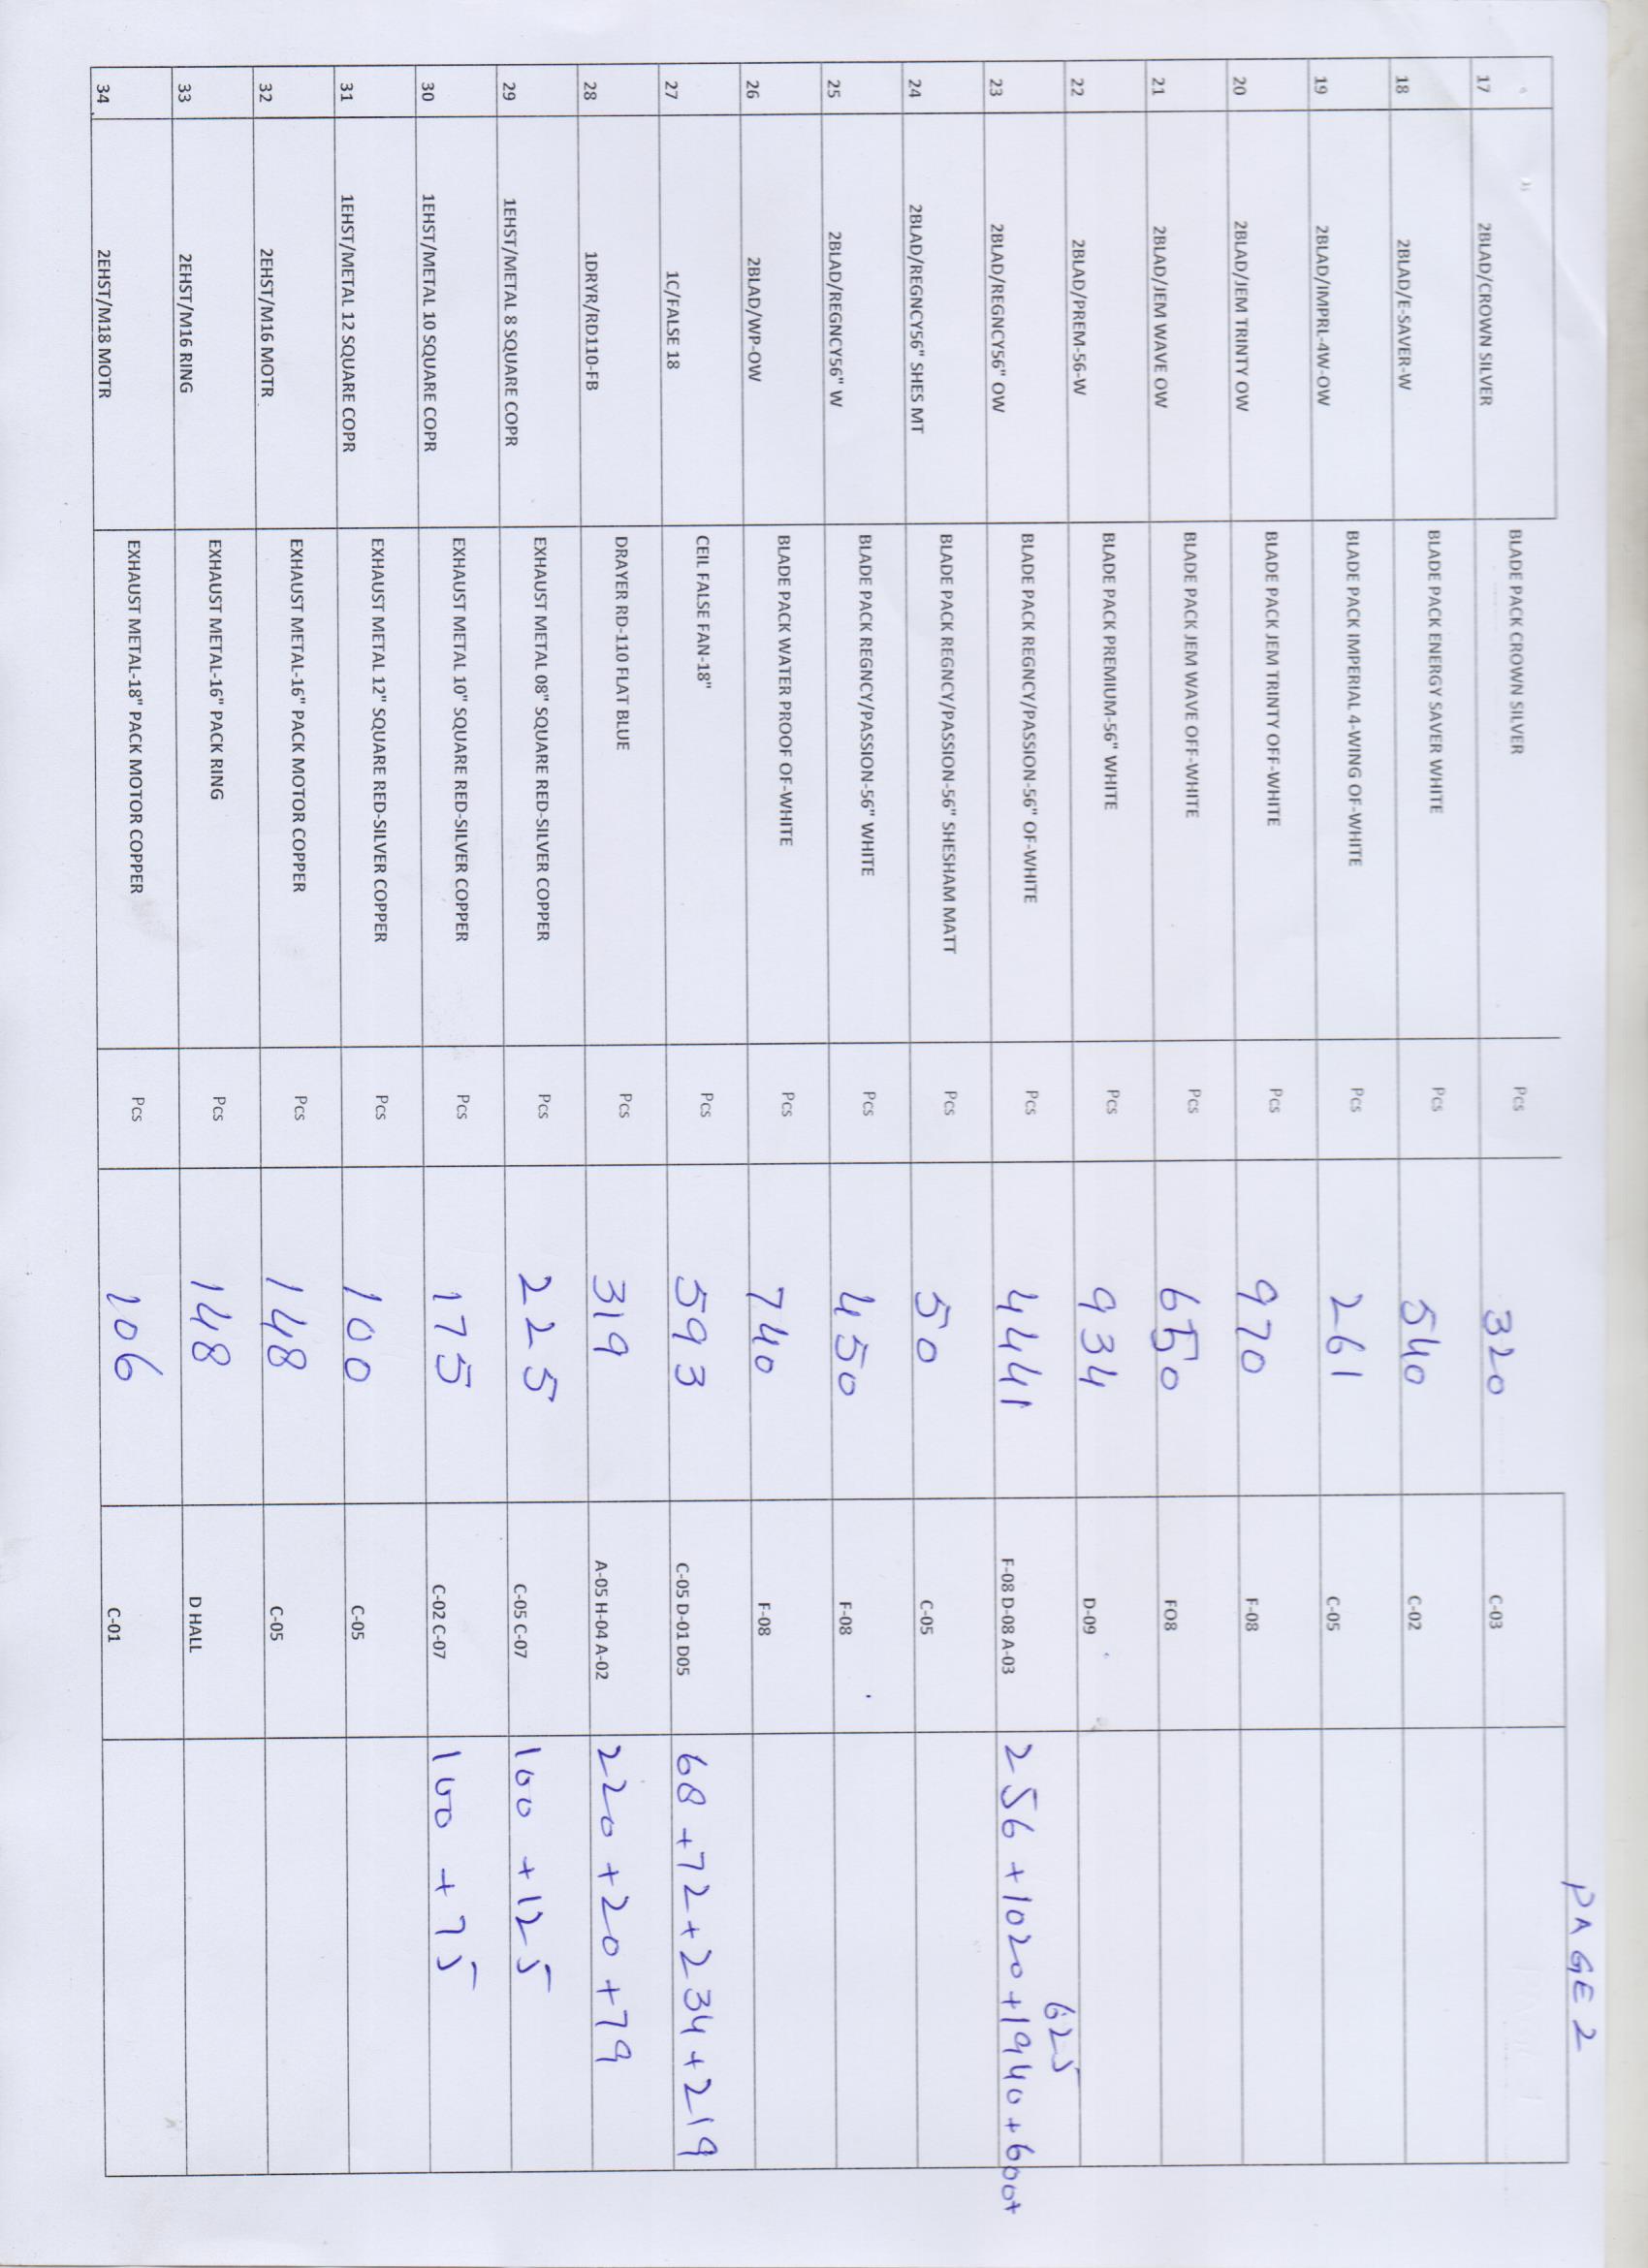 PAGE 2
17 2BLAD/CROWN SILVER BLADE PACK CROWN SILVER Pcs 320 C-03
18 2BLAD/E-SAVER-W BLADE PACK ENERGY SAVER WHITE Pcs 540 C-02
19 2BLAD/IMPRL-4W-OW BLADE PACK IMPERIAL 4-WING OF-WHITE Pcs 261 C-05
20 2BLAD/JEM TRINTY OW BLADE PACK JEM TRINTY OFF-WHITE Pcs 970 F-08
21 2BLAD/JEM WAVE OW BLADE PACK JEM WAVE OFF-WHITE Pcs 650 FO8
22 2BLAD/PREM-56-W BLADE PACK PREMIUM-56" WHITE Pcs 934 D-09
23 2BLAD/REGNCY56" OW BLADE PACK REGNCY/PASSION-56" OF-WHITE Pcs 4441 F-08 D-08 A-03 256 +1020 +1940 +600+
625
24 2BLAD/REGNCY56" SHES MT BLADE PACK REGNCY/PASSION-56" SHESHAM MATT Pcs 50 C-05
25 2BLAD/REGNCY56" W BLADE PACK REGNCY/PASSION-56" WHITE Pcs 450 F-08
26 2BLAD/WP-OW BLADE PACK WATER PROOF OF-WHITE Pcs 740 F-08
27 1C/FALSE 18 CEIL FALSE FAN-18" Pcs 593 C-05 D-01 D05 68 +72+234+219
28 1DRYR/RD110-FB DRAYER RD-110 FLAT BLUE Pcs 319 A-05 H-04 A-02 220 +20 +79
29 1EHST/METAL 8 SQUARE COPR EXHAUST METAL 08" SQUARE RED-SILVER COPPER Pcs 225 C-05 C-07 100 +125
30 1EHST/METAL 10 SQUARE COPR EXHAUST METAL 10" SQUARE RED-SILVER COPPER Pcs 175 C-02 C-07 100 +75
31 1EHST/METAL 12 SQUARE COPR EXHAUST METAL 12" SQUARE RED-SILVER COPPER Pcs 100 C-05
32 2EHST/M16 MOTR EXHAUST METAL-16" PACK MOTOR COPPER Pcs 148 C-05
33 2EHST/M16 RING EXHAUST METAL-16" PACK RING Pcs 148 D HALL
34 2EHST/M18 MOTR EXHAUST METAL-18" PACK MOTOR COPPER Pcs 106 C-01